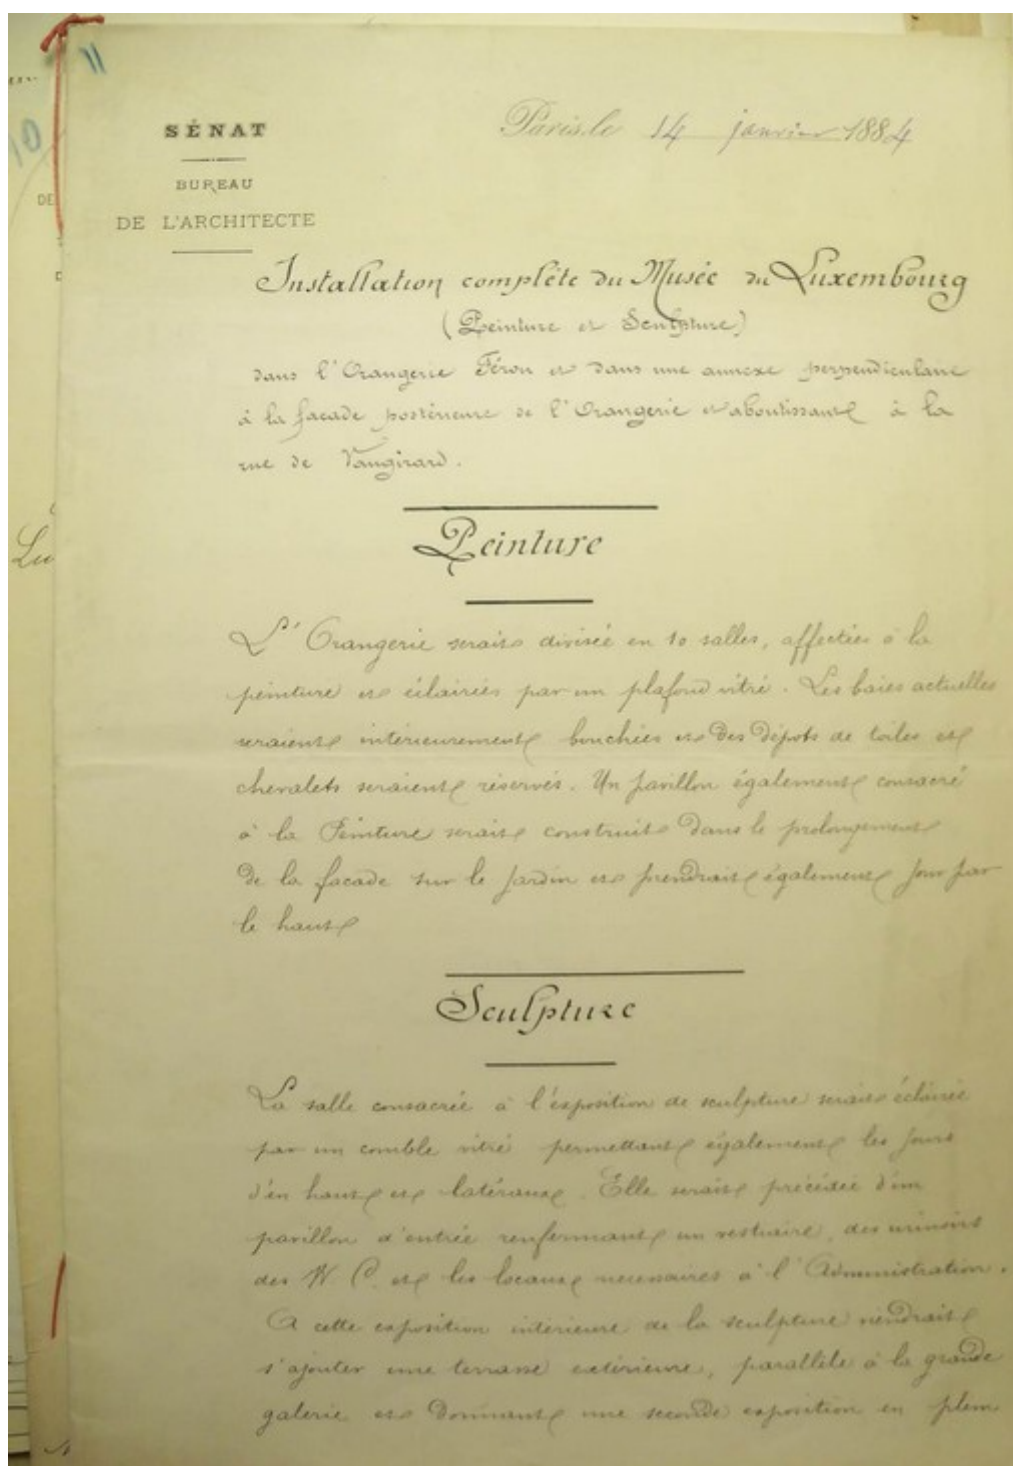 11
SÉNAT
BUREAU
DE L'ARCHITECTE
Paris, le 14 janvier 1884
Installation complète du Musée du Luxembourg
(Peinture et Sculpture)
dans l'Orangerie Féron et dans une annexe perpendiculaire
à la façade postérieure de l'Orangerie et aboutissant à la
rue de Vaugirard.
Peinture
L'Orangerie serait divisée en 10 salles, affectées à la
peinture et éclairées par un plafond vitré. Les baies actuelles
seraient intérieurement bouchées et des dépôts de toiles et
chevalets seraient réservés. Un pavillon également consacré
à la Peinture serait construit dans le prolongement
de la façade sur le jardin et prendrait également jour par
le haut
Sculpture
La salle consacrée à l'exposition de sculpture serait éclairée
par un comble vitré permettant également les jours
d'en haut et latéraux. Elle serait précédée d'un
pavillon d'entrée renfermant un vestiaire, des urinoirs
des W C. et les locaux nécessaires à l'Administration.
A cette exposition intérieure de la sculpture viendrait
s'ajouter une terrasse extérieure, parallèle à la grande
galerie et donnant une seconde exposition en plein
10
DE
Lu